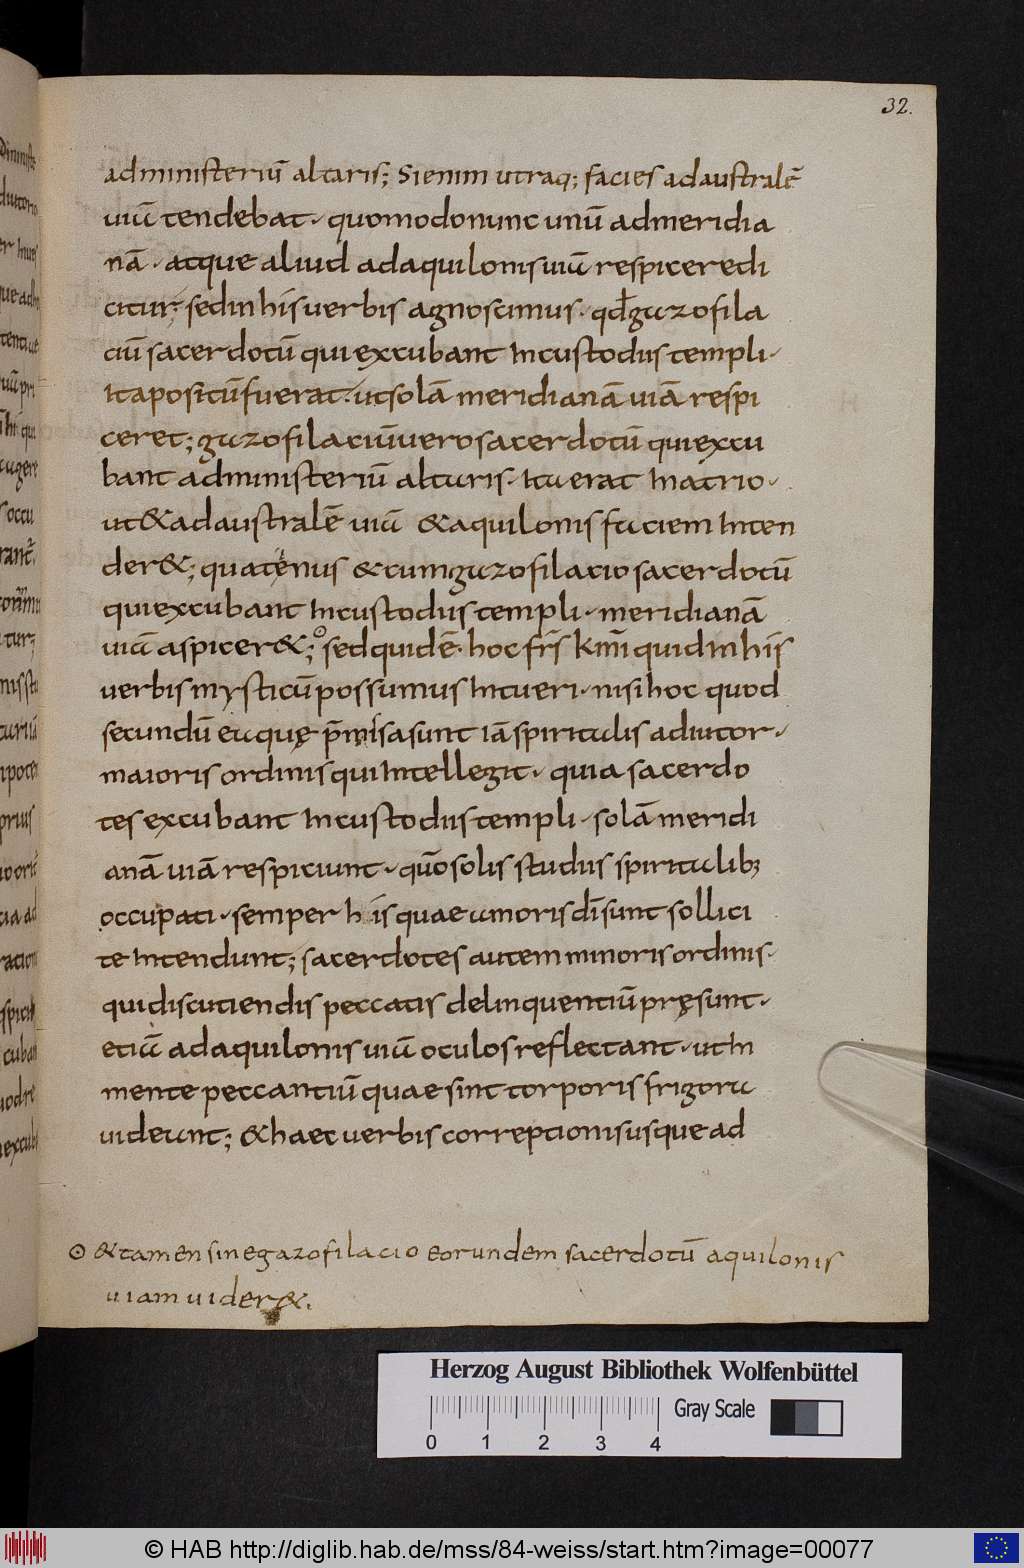 32.
administeriū altaris; Si enim utraq; facies ad australē
uiā tendebat· quomodo nunc unū ad meridia
nā· atque aliud ad aquilonis uiā respicere di
citur· sed in his uerbis agnoscimus· qđ gazofila
ciū sacerdotū qui excubant In custodiis templi·
Ita positū fuerat· ut solā meridianā uiā respi
ceret; gazofilaciū uero sacerdotū qui excu
bant ad ministeriū altaris· Ita erat In atrio·
ut & ad australē uiā & aquilonis faciem Inten
der&; quatenus & cum gazofilacio sacerdotū
qui excubant In custodiis templi· meridianā
uiā aspicer&; sed quidē· hoc frs̄ kmī quid In his
uerbis mysticū possumus Intueri· nisi hoc quod
secundū ea quę p̄misa sunt iā spiritalis adiutor·
maioris ordinis qui Intellegit· quia sacerdo
tes excubant In custodiis templi· solā meridi
anā uiā respiciunt· quō solis studiis spiritalib;
occupati· semper his quae amoris dī sunt sollici
te Intendunt; sacerdotes autem minoris ordinis·
qui discutiendis peccatis delinquentiū pręsunt·
etiā ad aquilonis uiā oculos reflectant· ut In
mente peccantiū quae sint torporis frigora
uideant; & haec uerbis correptionis usque ad
⊙ & tamen sine gazofilacio eorundem sacerdotū aquilonis
uiam uider&.
Herzog August Bibliothek Wolfenbüttel
Gray Scale
0 1 2 3 4
© HAB http://diglib.hab.de/mss/84-weiss/start.htm?image=00077